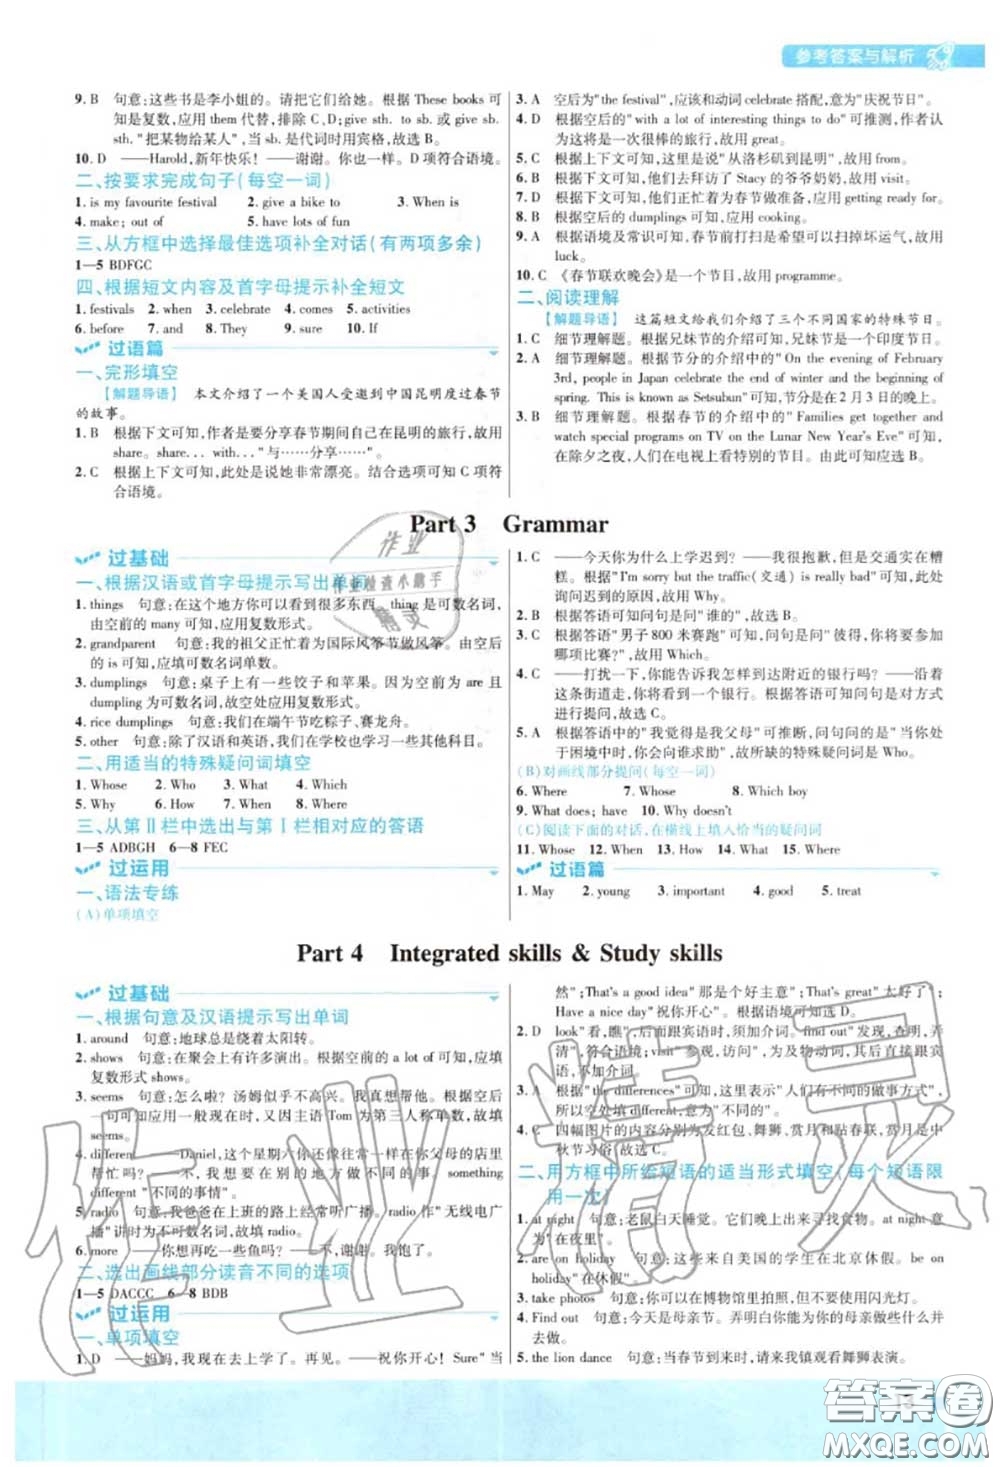 参考答案与解析
9. B 句意:这些书是李小姐的。请把它们给她。根据 These books 可
知是复数,应用 them 代替,排除 C、D;give sth. to sb. 或 give sb.
sth. "把某物给某人",当 sb. 是代词时用宾格,故选 B。
10. D ——Harold,新年快乐!——谢谢。你也一样。D 项符合语境。
二、按要求完成句子(每空一词)
1. is my favourite festival 2. give a bike to 3. When is
4. make; out of 5. have lots of fun
三、从方框中选择最佳选项补全对话(有两项多余)
1—5 BDFGC
四、根据短文内容及首字母提示补全短文
1. festivals 2. when 3. celebrate 4. comes 5. activities
6. before 7. and 8. They 9. sure 10. If
过语篇
一、完形填空
【解题导语】 本文介绍了一个美国人受邀到中国昆明度过春节
的故事。
1. B 根据下文可知,作者是要分享春节期间自己在昆明的旅行,故用
share。share... with..."与……分享……"。
2. C 根据上下文可知,此处是说她非常漂亮。结合选项可知 C 项符
合语境。
3. A 空后为"the festival",应该和动词 celebrate 搭配,意为"庆祝节日"。
4. D 根据空后的"with a lot of interesting things to do"可推测,作者认
为这将是一次很棒的旅行,故用 great。
5. C 根据上下文可知,这里是说"从洛杉矶到昆明",故用 from。
6. D 根据上下文可知,他们去拜访了 Stacy 的爷爷奶奶,故用 visit。
7. D 根据下文可知,他们正忙着为春节做准备,应用 getting ready for。
8. B 根据空后的 dumplings 可知,应用 cooking。
9. A 根据语境及常识可知,春节前打扫是希望可以扫掉坏运气,故用
luck。
10. C 《春节联欢晚会》是一个节目,故用 programme。
二、阅读理解
【解题导语】 这篇短文给我们介绍了三个不同国家的特殊节日。
1. C 细节理解题。根据兄妹节的介绍可知,兄妹节是一个印度节日。
2. A 细节理解题。根据节分的介绍中的"On the evening of February
3rd, people in Japan celebrate the end of winter and the beginning of
spring. This is known as Setsubun"可知,节分是在 2 月 3 日的晚上。
3. B 细节理解题。根据春节的介绍中的"Families get together and
watch special programs on TV on the Lunar New Year's Eve"可知,
在除夕之夜,人们在电视上看特别的节目。由此可知应选 B。
Part 3 Grammar
过基础
一、根据汉语或首字母提示写出单词
1. things 句意:在这个地方你可以看到很多东西。thing 是可数名词,
由空前的 many 可知,应用复数形式。
2. grandparent 句意:我的祖父正忙着为国际风筝节做风筝。由空后
的 is 可知,应填可数名词单数。
3. dumplings 句意:桌子上有一些饺子和苹果。因为空前为 are 且
dumpling 为可数名词,故空处应用复数形式。
4. rice dumplings 句意:我们在端午节吃粽子、赛龙舟。
5. other 句意:除了汉语和英语,我们在学校也学习一些其他科目。
二、用适当的特殊疑问词填空
1. Whose 2. Who 3. What 4. Which
5. Why 6. How 7. When 8. Where
三、从第Ⅱ栏中选出与第Ⅰ栏相对应的答语
1—5 ADBGH 6—8 FEC
过运用
一、语法专练
(A)单项填空
1. C ——今天你为什么上学迟到?——我很抱歉,但是交通实在糟
糕。根据"I'm sorry but the traffic(交通) is really bad"可知,此处
询问迟到的原因,故用 Why。
2. B 根据答语可知问句是问"谁的",故选 B。
3. B 根据答语"男子 800 米赛跑"可知,问句是问"彼得,你将要参加
哪项比赛?",故用 Which。
4. C ——打扰一下,你能告诉我怎样到达附近的银行吗?——沿着
这条街道走,你会看见的。根据答语可知问句是对方式
进行提问,故选 C。
5. A 根据答语中的"我觉得是我父母"可推断,问句问的是"当你处
于困境中时,你会向谁求助",故所缺的特殊疑问词是 Who。
(B)对画线部分提问(每空一词)
6. Where 7. Whose 8. Which boy
9. What does; have 10. Why doesn't
(C)阅读下面的对话,在横线上填入恰当的疑问词
11. Whose 12. When 13. How 14. What 15. Where
过语篇
1. May 2. young 3. important 4. good 5. treat
Part 4 Integrated skills & Study skills
过基础
一、根据句意及汉语提示写出单词
1. around 句意:地球总是绕着太阳转。
2. shows 句意:在聚会上有许多演出。根据空前的 a lot of 可知,应填
复数形式 shows。
3. seems 句意:怎么啦?汤姆似乎不高兴。我真想帮帮他。根据前
一句可知应用一般现在时,又因主语 Tom 为第三人称单数,故填
seems。
4. different ——Daniel,这个星期六你还像往常一样会去父母的店里
帮忙吗?——不,我会做些不同的事情。something
different "不同的事情"。
5. radio 句意:我爸爸在上班的路上经常听广播。radio 作"无线电广
播"讲时为不可数名词,故填 radio。
6. more ——你想再吃一些鱼吗?——不,谢谢。我饱了。
二、选出画线部分读音不同的选项
1—5 DACCC 6—8 BDB
过运用
一、单项填空
1. D ——妈妈,我现在去上学了。再见。——祝你开心! Sure"当
然";That's a good idea"那是个好主意";That's great"太好了";
Have a nice day"祝你开心"。根据语境可知选 D。
2. D look"看,瞧",后面跟宾语时,须加介词。find out"发现,查明,弄
清",符合语境;visit"参观,访问",为及物动词,其后直接跟宾
语,不加介词。
3. A 根据"the differences"可知,这里表示"人们有不同的做事方式",
所以空处填 different,意为"不同的"。
4. C 四幅图片的内容分别为发红包、舞狮、赏月和贴春联,赏月是中
秋节习俗,故选 C。
二、用方框中所给短语的适当形式填空(每个短语限
用一次)
1. at night 句意:老鼠白天睡觉。它们晚上出来寻找食物。at night 意
为"在夜里"。
2. are on holiday 句意:这些来自美国的学生在北京休假。be on
holiday"在休假"。
3. take photos 句意:你可以在博物馆里拍照,但不要使用闪光灯。
4. Find out 句意:今天是母亲节。弄明白你能为你的母亲做些什么并
去做。
5. the lion dance 句意:当春节到来时,请来我镇观看舞狮表演。
作业
作业检查小助手
精灵
作业精灵
答案圈
MXQE.COM